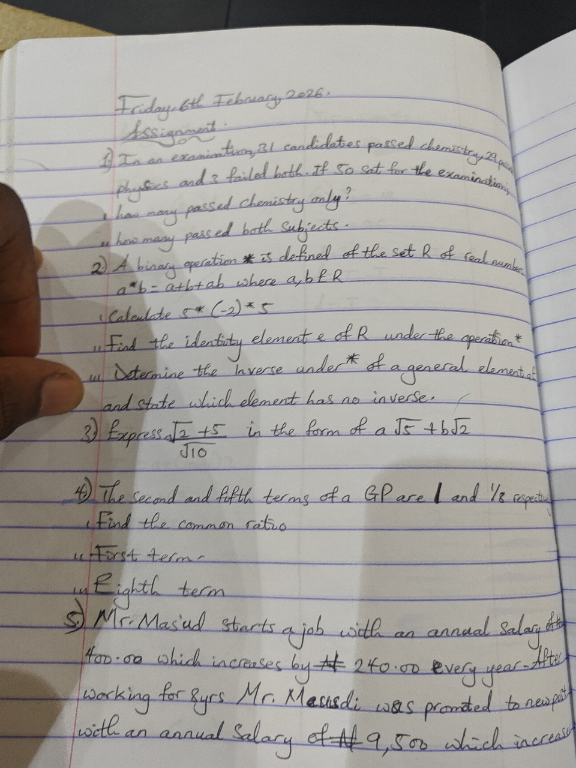 Friday, 6th February, 2026.
Assignment.
1) In an examination, 31 candidates passed chemistry, 29
physics and 3 failed both. If 50 sat for the examination,
i how many passed Chemistry only?
ii how many passed both subjects.
2) A binary operation * is defined of the set R of real number
a*b = a+b+ab where a, b ∈ R
i Calculate 5 * (-2) * 5
ii Find the identity element e of R under the operation *
iii Determine the Inverse under * of a general element
and state which element has no inverse.
3) Express √2 + 5 in the form of a √5 + b√2
√10
4) The second and fifth terms of a GP are 1 and 1/8
i Find the common ratio
ii First term.
iii Eighth term
5) Mr. Mas'ud starts a job with an annual Salary
400.00 which increases by ₦ 240.00 every year. After
working for 8yrs Mr. Masusdi was promoted to new
with an annual Salary of ₦ 9,500 which increase